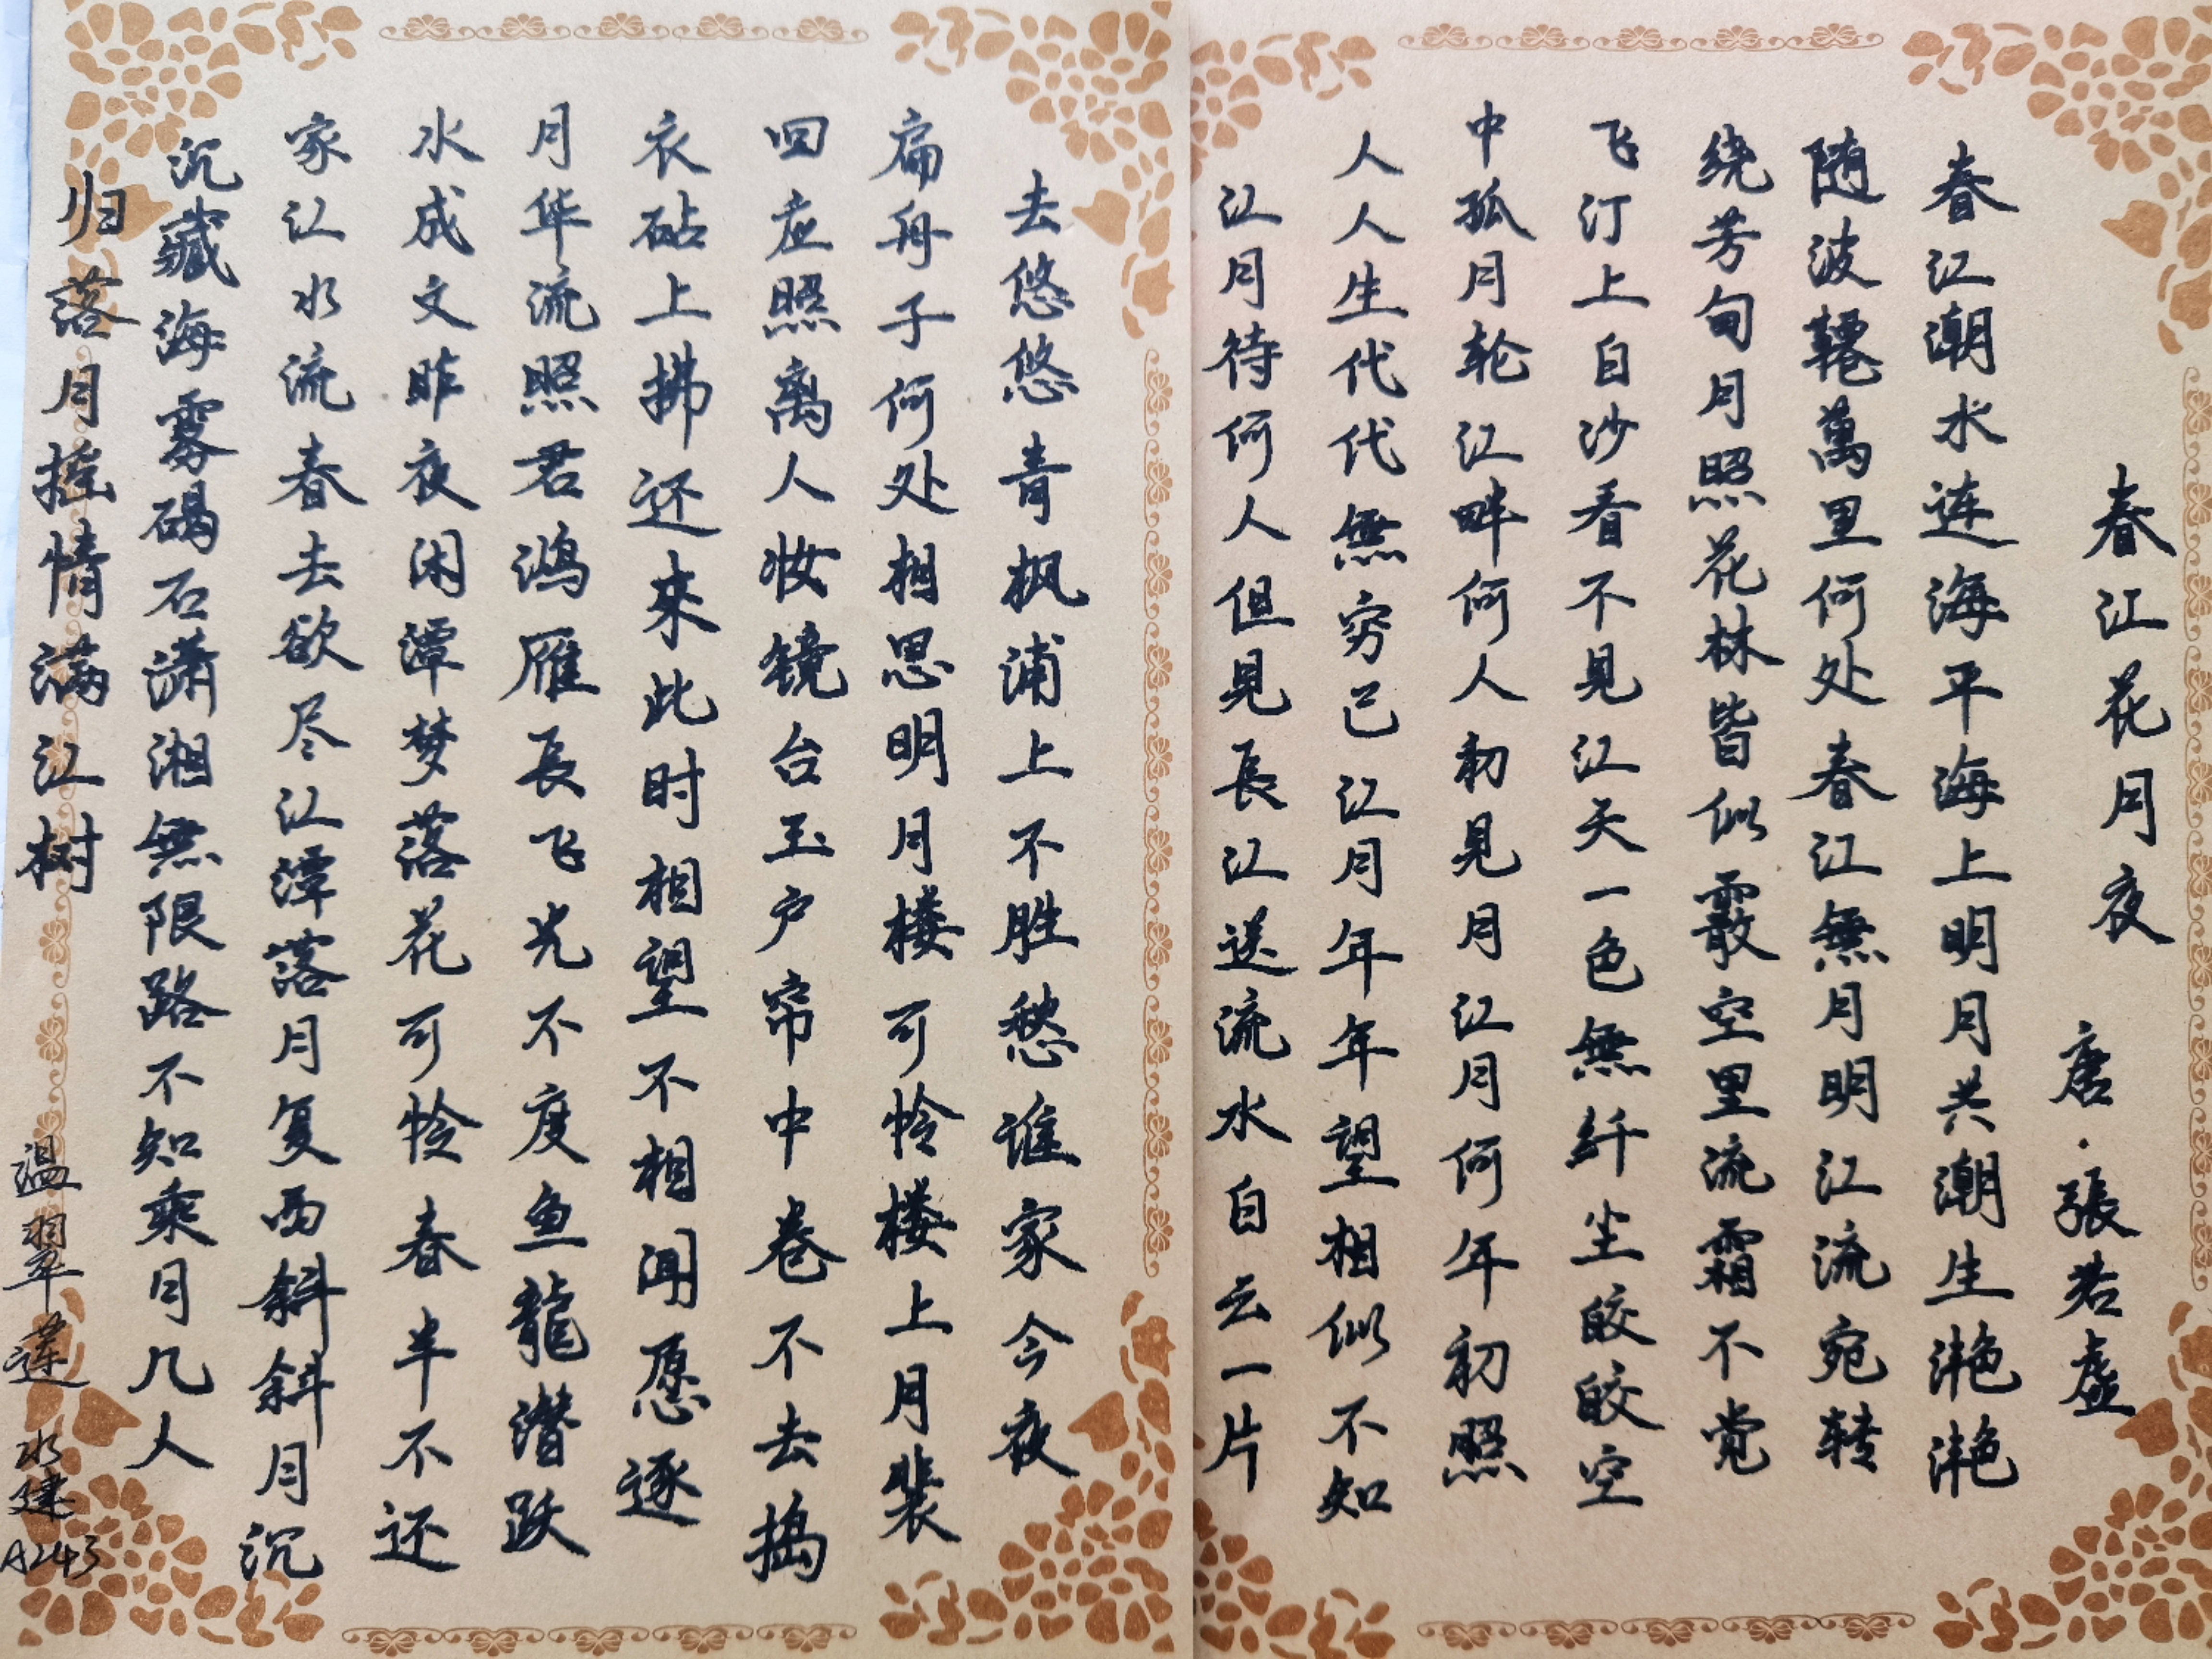 春江花月夜
唐·張若虚
春江潮水连海平海上明月共潮生滟滟
随波韆萬里何处春江無月明江流宛转
绕芳甸月照花林皆似霰空里流霜不觉
飞汀上白沙看不見江天一色無纤尘皎皎空
中孤月轮江畔何人初見月江月何年初照
人人生代代無穷已江月年年望相似不知
江月待何人但見長江送流水白云一片
去悠悠青枫浦上不胜愁谁家今夜
扁舟子何处相思明月楼可怜楼上月裴
回应照离人妆镜台玉户帘中卷不去捣
衣砧上拂还來此时相望不相闻愿逐
月华流照君鸿雁長飞光不度鱼龍潜跃
水成文昨夜闲潭梦落花可怜春半不还
家江水流春去欲尽江潭落月复西斜斜月沉
沉藏海雾碣石潇湘無限路不知乘月几人
归落月摇情满江树
温翠莲 水建 A243